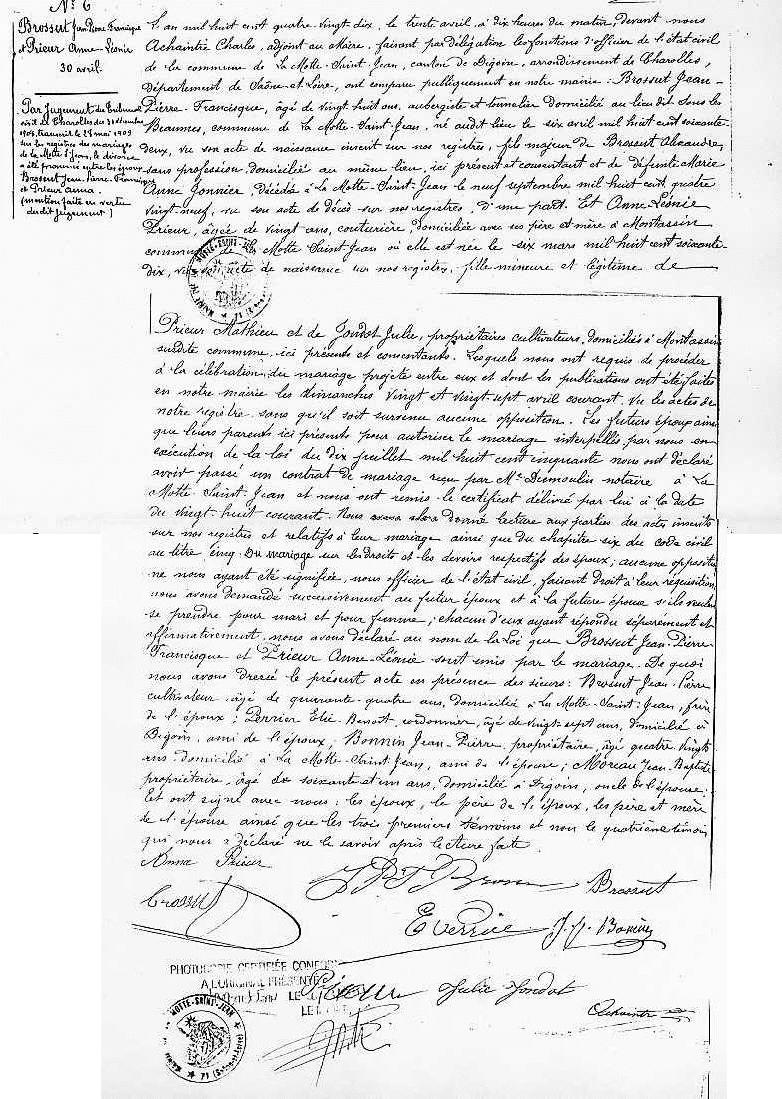 N° 6
Brossut Jean Pierre Francisque
et Prieur Anne-Léonie
30 avril.
Par Jugement du Tribunal
civil de Charolles du
transmit le 28 mai 1909
sur les registres des mariages
de la Motte St Jean, le divorce
a été prononcé entre les époux
Brossut Jean-Pierre-Francisque
et Prieur Anna.
(mention faite en vertu
dudit Jugement)
L'an mil huit cent quatre vingt dix, le trente avril, à dix heures du matin, devant nous
Achaintre Charles, adjoint au Maire, faisant par délégation les fonctions d'officier de l'état civil
de la commune de La Motte-Saint-Jean, canton de Digoin, arrondissement de Charolles,
Département de Saône et Loire, ont comparu publiquement en notre mairie: Brossut Jean-
Pierre-Francisque, âgé de vingt huit ans, aubergiste et tonnelier domicilié au lieu dit Sous les
Beaumes, commune de la Motte-Saint-Jean, né audit lieu le six avril mil huit cent soixante-
deux, vu son acte de naissance inscrit sur nos registres, fils majeur de Brossut Alexandre,
sans profession, domicilié au même lieu, ici présent et consentant et de défunte Marie
Anne Jonnier, décédée à La Motte-Saint-Jean le neuf septembre mil huit cent quatre
vingt-neuf, vu son acte de décès sur nos registres, d'une part. Et Anne-Léonie
Prieur, âgée de vingt ans, couturière, domiciliée avec ses père et mère à Montassin
commune de La Motte Saint Jean où elle est née le six mars mil huit cent soixante
dix, vu son acte de naissance sur nos registres, fille mineure et légitime de
Prieur Mathieu et de Jondot Julie, propriétaires cultivateurs, domiciliés à Montassin
susdite commune, ici présents et consentants. Lesquels nous ont requis de procéder
à la célébration du mariage projeté entre eux et dont les publications ont été faites
en notre mairie les dimanches vingt et vingt sept avril courant, vu les actes de
notre registre sans qu'il soit survenu aucune opposition. Les futurs époux ainsi
que leurs parents ici présents pour autoriser le mariage interpellés par nous en
exécution de la loi du dix juillet mil huit cent cinquante nous ont déclaré
avoir passé un contrat de mariage reçu par Me Dumoulin notaire à La
Motte-Saint-Jean et nous ont remis le certificat délivré par lui à la date
du vingt-huit courant. Nous avons alors donné lecture aux parties des actes inscrits
sur nos registres et relatifs à leur mariage ainsi que du chapitre six du code civil
au titre cinq Du mariage sur les droits et les devoirs respectifs des époux; aucune opposition
ne nous ayant été signifiée, nous officier de l'état civil, faisant droit à leur réquisition
nous avons demandé successivement au futur époux et à la future épouse s'ils veulent
se prendre pour mari et pour femme; chacun d'eux ayant répondu séparément et
affirmativement, nous avons déclaré au nom de la Loi que Brossut Jean-Pierre
Francisque et Prieur Anne-Léonie sont unis par le mariage. De quoi
nous avons dressé le présent acte en présence des sieurs: Brossut Jean-Pierre
cultivateur, âgé de quarante-quatre ans, domicilié à La Motte-Saint-Jean, frère
de l'époux; Perrier Elie Benoit, cordonnier, âgé de vingt sept ans, domicilié à
Digoin, ami de l'époux; Bonnin Jean-Pierre, propriétaire, âgé quatre vingts
ans domicilié à La Motte-Saint-Jean, ami de l'épouse; Moreau Jean-Baptiste
propriétaire, âgé de soixante et un ans, domicilié à Digoin, oncle de l'épouse.
Et ont signé avec nous: les époux, le père de l'époux, les père et mère
de l'épouse ainsi que les trois premiers témoins et non le quatrième témoin
qui nous a déclaré ne le savoir après lecture faite.
Anna Prieur
Brossut
Brossut
J. P. Bonin
PHOTOCOPIE CERTIFIÉE CONFORME
A L'ORIGINAL PRÉSENTÉ
LE
Prieur
Julie Jondot
Achaintre
MOTTE-SAINT-JEAN
MAIRIE
71 (Saône-et-Loire)